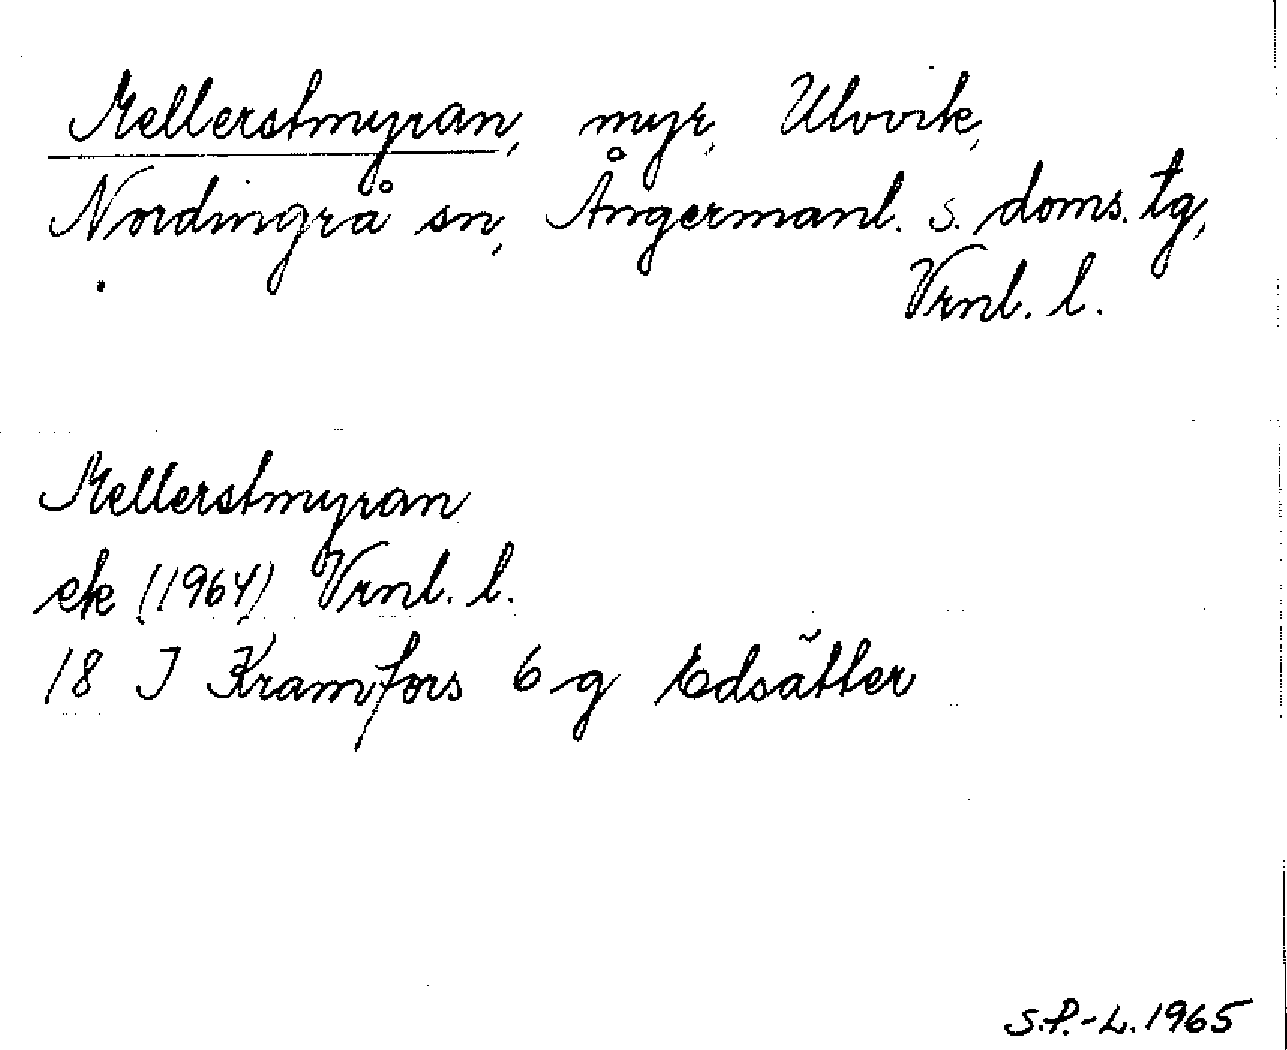 Mellerstmyran, myr, Ulvvik,
Nordingrå sn, Ångermanl. s. doms. tg,
Vrnl. l.
Mellerstmyran
ek (1964) Vrnl. l.
18 J Kramfors 6 g Edsätter
S.P.-L. 1965